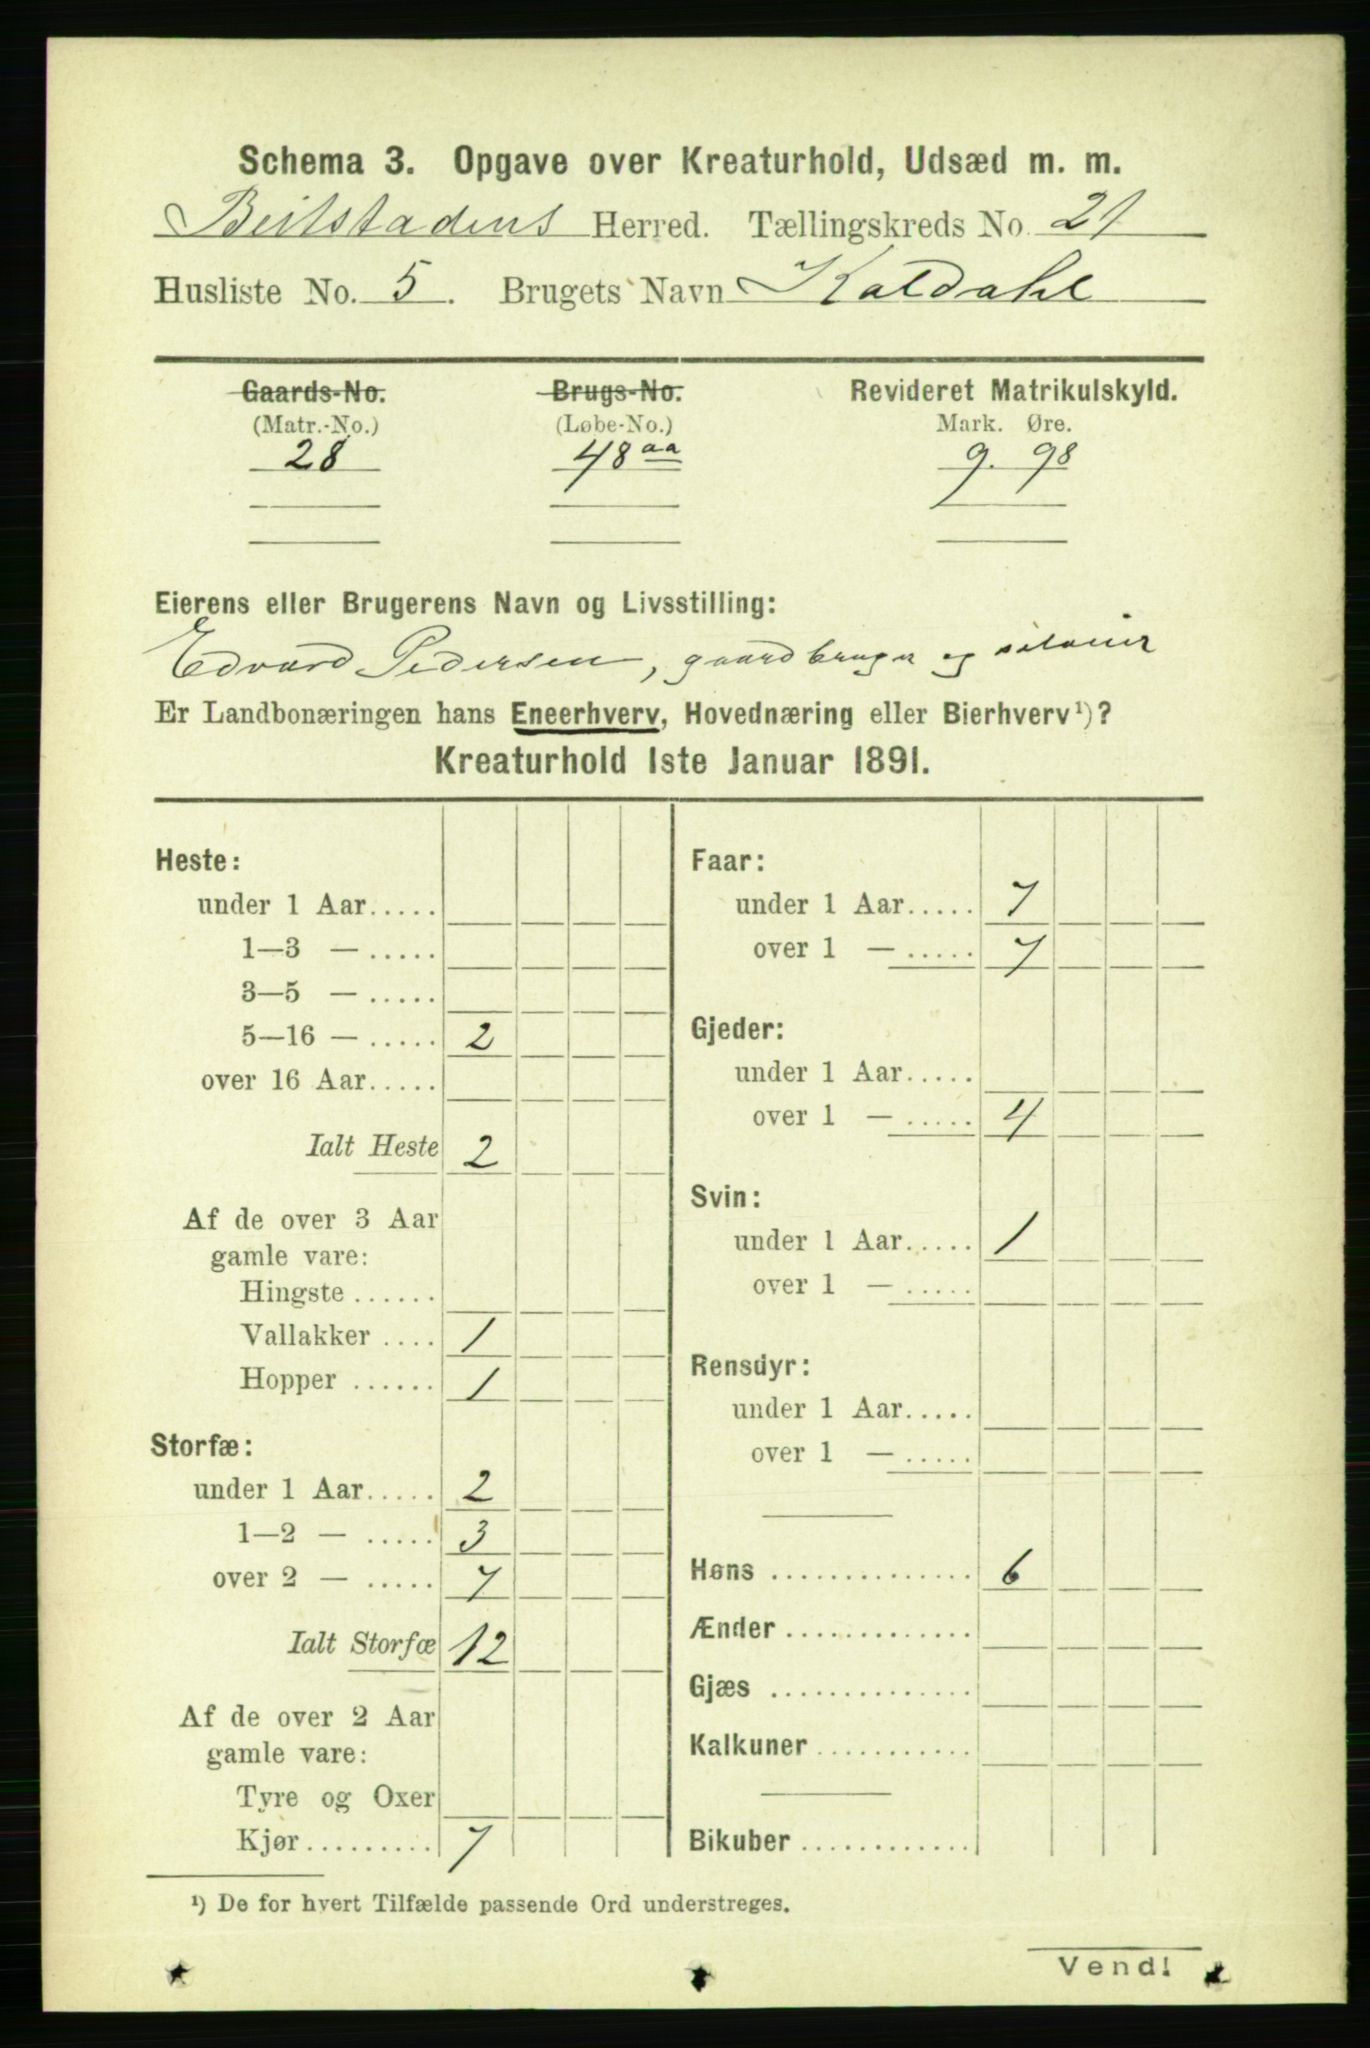 Schema 3. Opgave over Kreaturhold, Udsæd m. m.
Beitstadens Herred. Tællingskreds No. 21
Husliste No. 5. Brugets Navn Kaldahl
Gaards-No. Brugs-No. Revideret Matrikulskyld.
(Matr.-No.) (Løbe-No.) Mark. Øre.
28 48 aa 9. 98
Eierens eller Brugerens Navn og Livsstilling:
Edvard Pedersen, gaardbruger og selveier
Er Landbonæringen hans Eneerhverv, Hovednæring eller Bierhverv¹)?
Kreaturhold 1ste Januar 1891.
Heste:
under 1 Aar.....
1—3 — .....
3—5 — .....
5—16 — ..... 2
over 16 Aar.....
Ialt Heste 2
Af de over 3 Aar
gamle vare:
Hingste ......
Vallakker .... 1
Hopper ...... 1
Storfæ:
under 1 Aar..... 2
1—2 — ..... 3
over 2 — ..... 7
Ialt Storfæ 12
Af de over 2 Aar
gamle vare:
Tyre og Oxer
Kjør......... 7
Faar:
under 1 Aar..... 7
over 1 — ..... 7
Gjeder:
under 1 Aar.....
over 1 — ..... 4
Svin:
under 1 Aar..... 1
over 1 — .....
Rensdyr:
under 1 Aar.....
over 1 — .....
Høns .............. 6
Ænder .............
Gjæs ..............
Kalkuner...........
Bikuber ............
¹) De for hvert Tilfælde passende Ord understreges.
Vend!